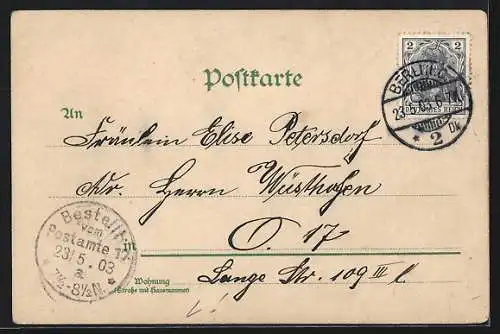 2 2
DEUTSCHES REICH
BERLIN C.
23
* 2 Dk
Postkarte
An
Fräulein Elise Petersdorf
Adr. Herrn Wüsthofen
in O. 17
Wohnung
(Straße und Hausnummer)
Lange Str. 109 III l
Bestellt
vom
Postamte 17
23/5.03
a.
* 7½-8½N. *